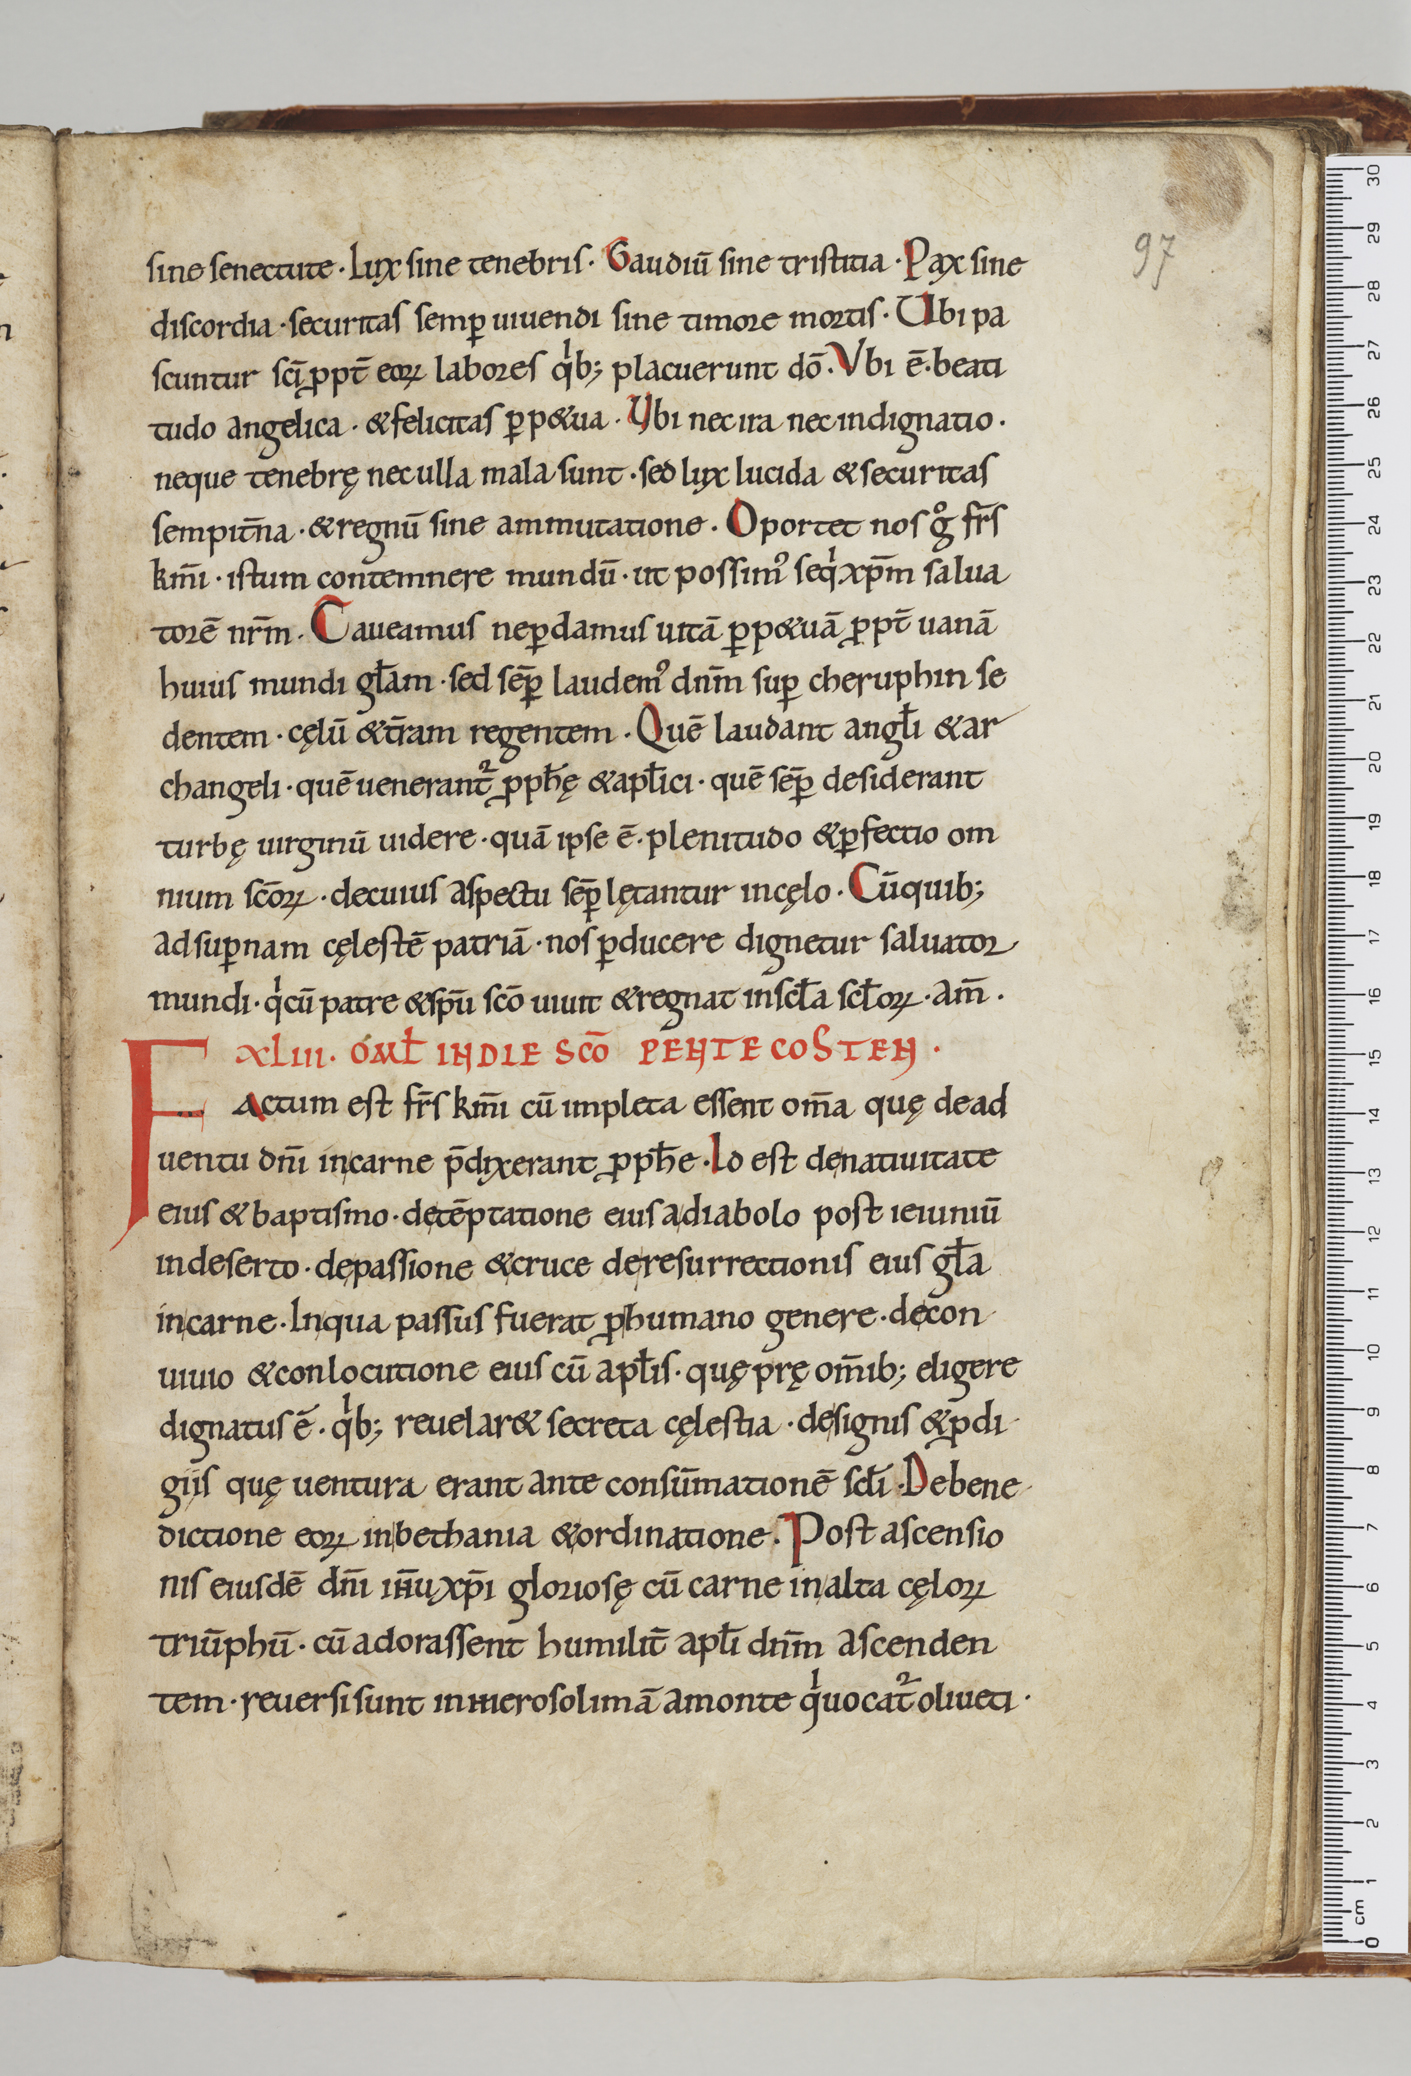 97
sine senectute · Lux sine tenebris · Gaudiū sine tristitia · Pax sine
discordia · securitas semꝑ uiuendi sine timore mortis · Ubi pa
scuntur sc̄i ꝓpt̄ eoꝝ labores qͥb; placuerunt dō · Vbi ē · beati
tudo angelica · & felicitas ꝑp&ua · Vbi nec ira nec indignatio ·
neque tenebrę nec ulla mala sunt · sed lux lucida & securitas
sempit̄na · & regnū sine ammutatione · Oportet nos gͦ fr̄s
km̄i · istum contemnere mundū · ut possimꝰ seqͥ xp̄m salua
torē nr̄m · Caueamus ne ꝑdamus uitā ꝑp&uā ꝓpt̄ uanā
huius mundi gl̄am · sed sēꝑ laudemꝰ dn̄m suꝑ cheruphin se
dentem · cęlū & t̄ram regentem · Quē laudant angl̄i & ar
changeli · quē uenerant᷑ ꝓph̄ę & apl̄ici · quē sēꝑ desiderant
turbę uirginū uidere · quā ipse ē · plenitudo & ꝑfectio om
nium sc̄oꝝ · de cuius aspectu sēꝑ lętantur in cęlo · Cū quib;
ad suꝑnam cęlestē patriā · nos ꝑducere dignetur saluator
mundi · qͥ cū patre & sp̄u sc̄o uiuit & regnat in scl̄a scl̄oꝝ · am̄ ·
XLIII · OML̄ IN DIE SC̄O PENTECOSTEN ·
Factum est fr̄s km̄i cū impleta essent om̄a quę de ad
uentu dn̄i in carne p̄dixerant ꝓph̄e · Id est de natiuitate
eius & baptismo · de tēptatione eius a diabolo post ieiuniū
in deserto · de passione & cruce de resurrectionis eius gl̄a
in carne · In qua passus fuerat ꝓ humano genere · de con
uiuio & conlocutione eius cū apl̄is · quę prę om̄ib; eligere
dignatus ē · qͥb; reuelar& secreta cęlestia · de signis & ꝓdi
giis quę uentura erant ante consūmationē scl̄i · De bene
dictione eoꝝ in bethania & ordinatione · Post ascensio
nis eiusdē dn̄i ih̄u xp̄i gloriosę cū carne in alta cęloꝝ
triūphū · cū adorassent humilit̄ apl̄i dn̄m ascenden
tem · reuersi sunt in hierosolimā a monte qͥ uocat᷑ oliueti ·